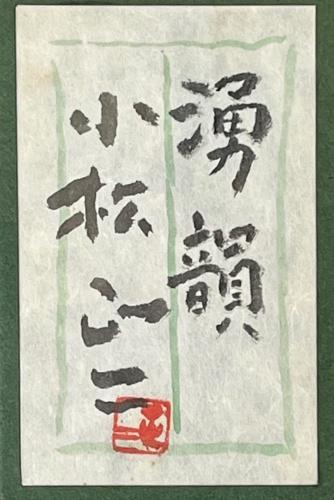 湧韻
小松正二